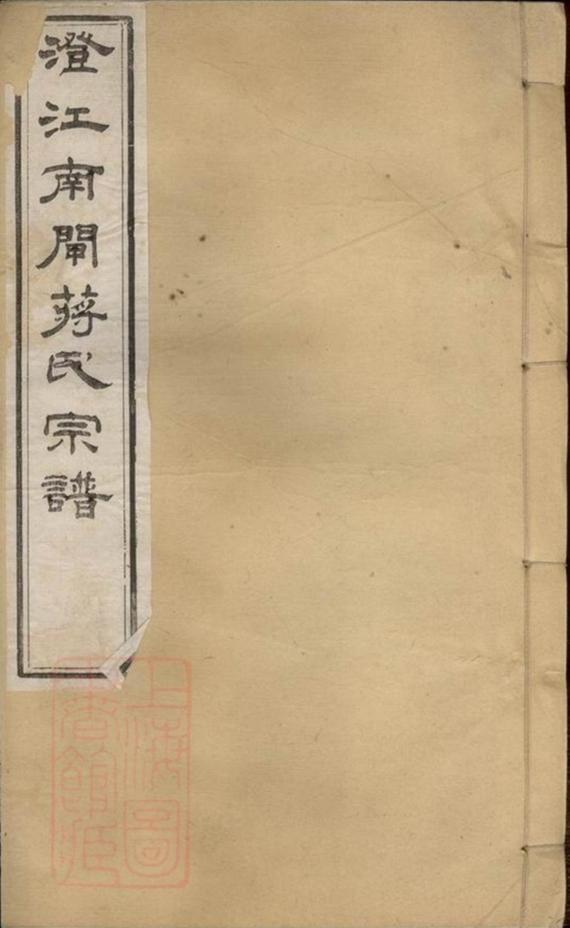 澄江南閘蔣氏宗譜
上海圖
書館藏